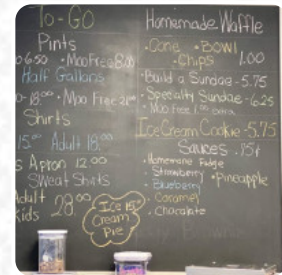 To-Go
Pints
6.50 • Moo Free 8.00
Half Gallons
18.00 • Moo Free 21
Shirts
15.00 Adult 18.00
Apron 12.00
Sweat Shirts
Adult 28.00
Kids
Ice 15
Cream
Pie
Homemade Waffle
• Cone • Bowl
• Chips 1.00
• Build a Sundae - 5.75
• Specialty Sundae - 6.25
• Moo free 1.00 extra
Ice Cream Cookie - 5.75
Sauces . 75¢
• Homemade Fudge
• Strawberry
• Pineapple
• Blueberry
• Caramel
• Chocolate